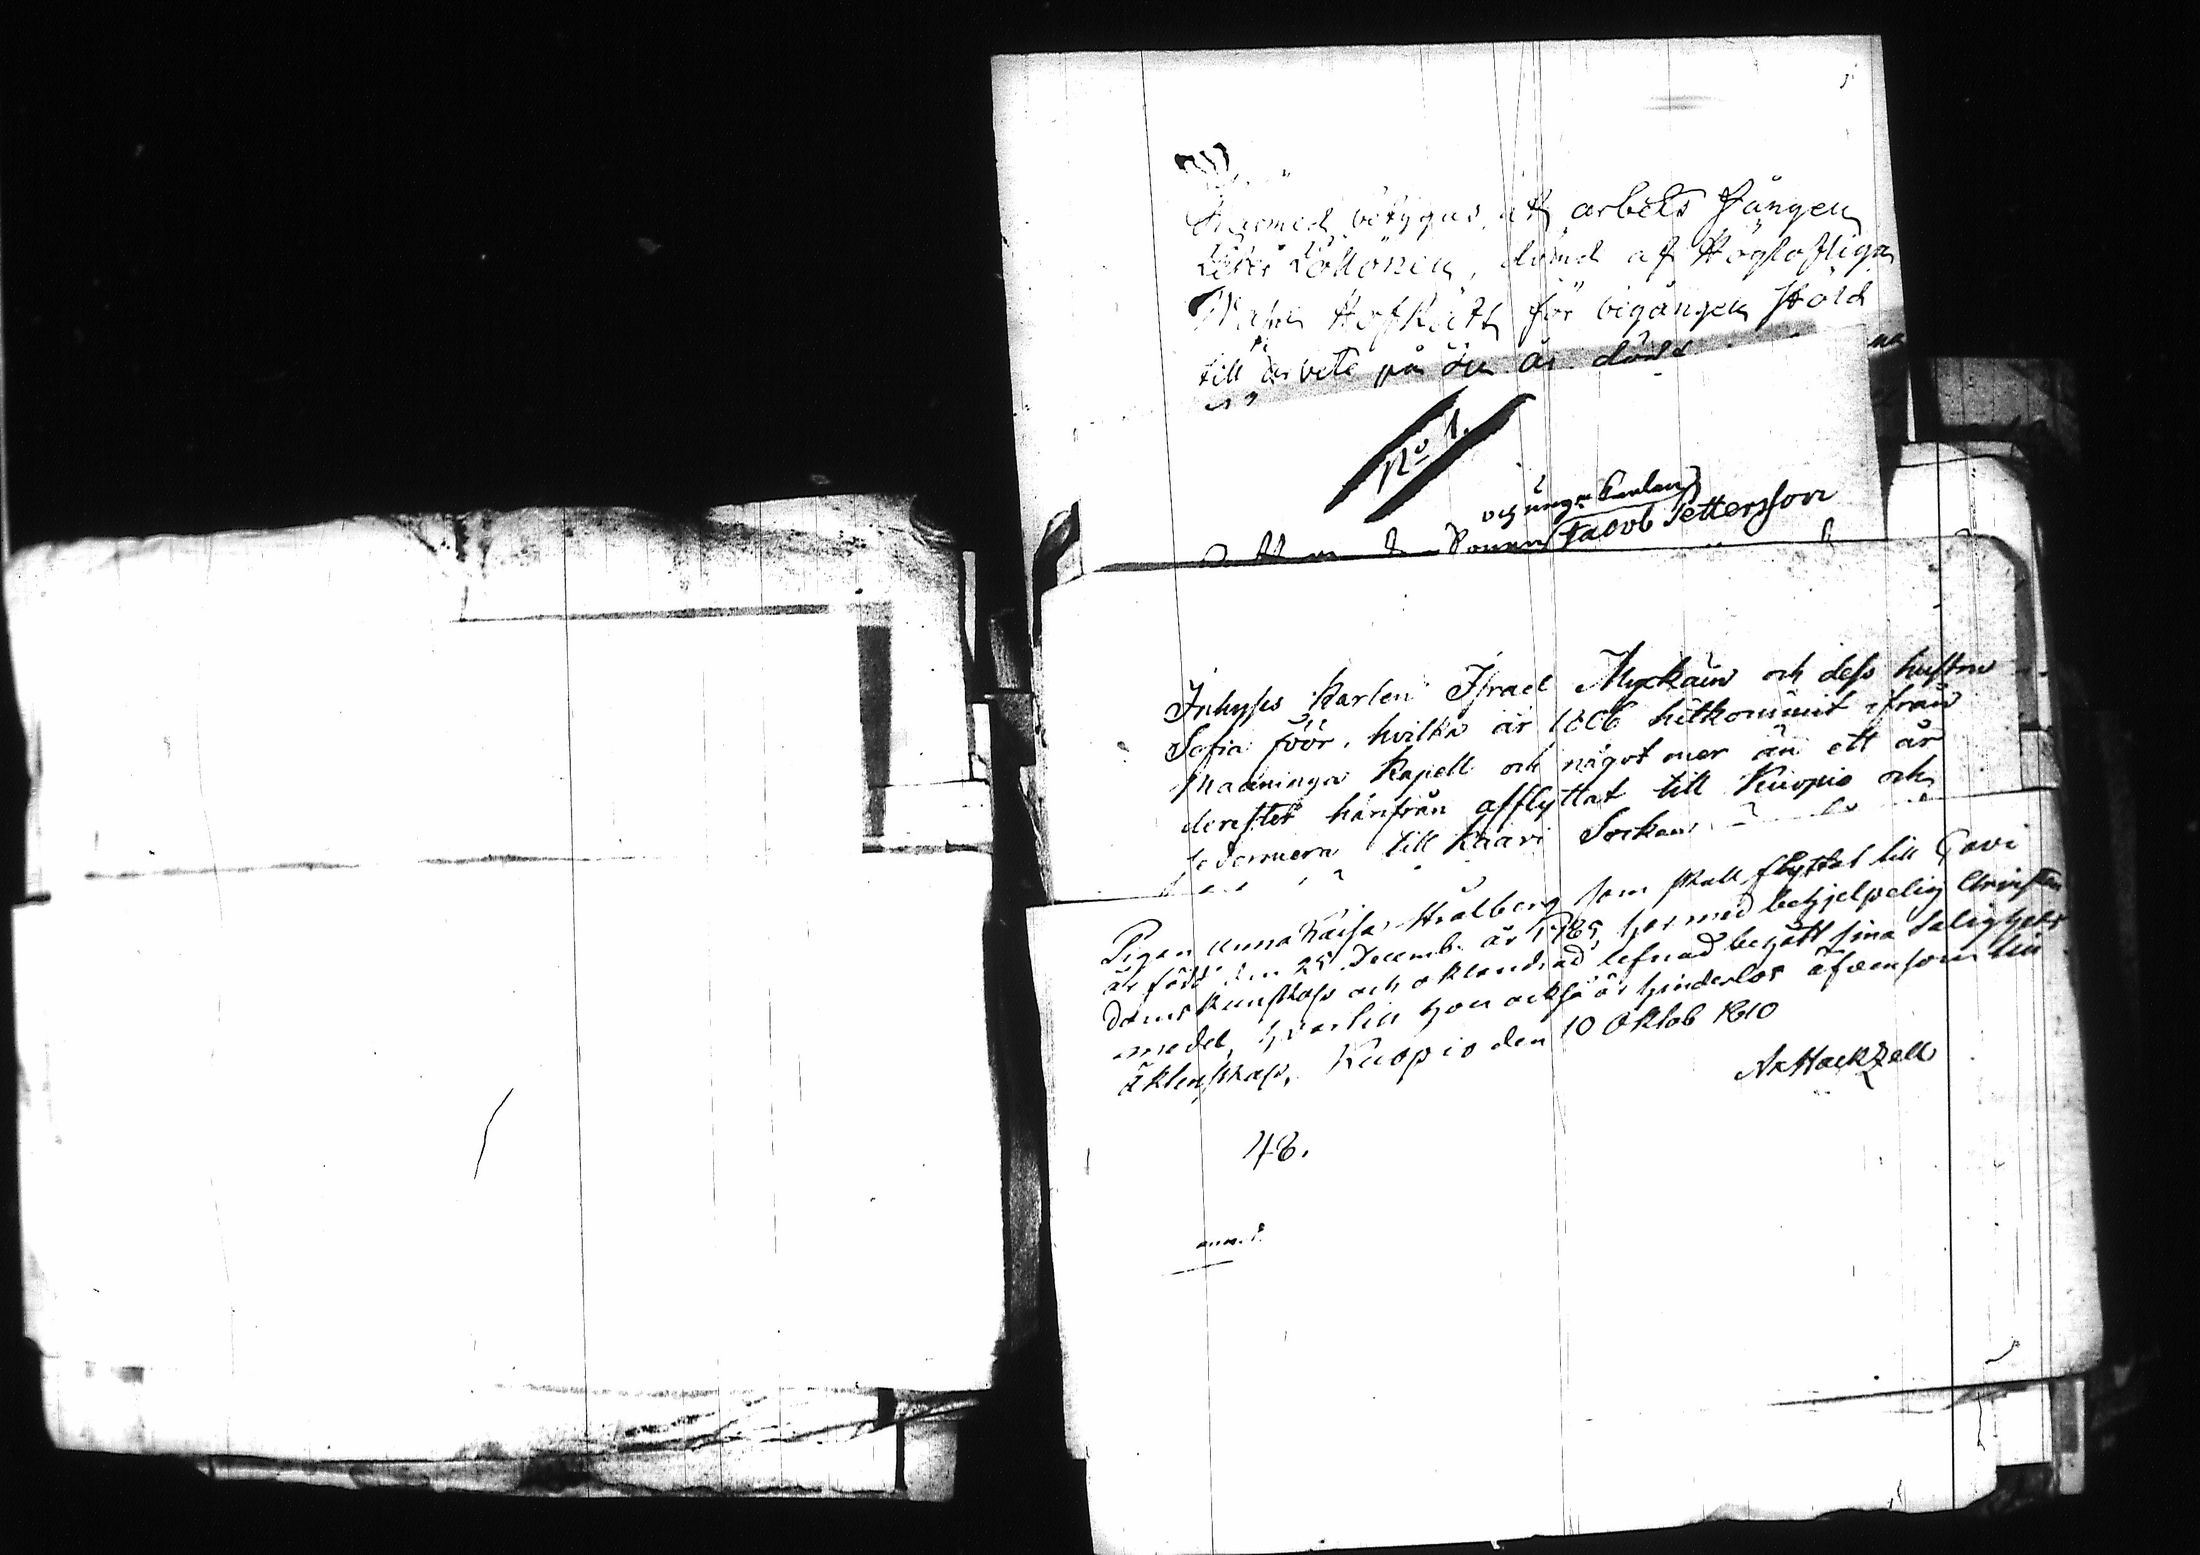 Härmed betygas, at arbets Fången
Löttönen, dömd af Höglofliga
Wasa HofRätt för begången stöld
till arbete på är dömd
No 1.
och unge Karlen
Jacob Pettersson
Inhyses Karlen Israel Myckäin och dess hustru
Sofia föör, hvilka år 1806 hitkommit ifrån
Maaninga Kapell och något mer än ett år
derefter härifrån afflyttat till Kuopio och
sedermera till Kaavi Socken
Pigan Anna Kaisa Stralberg som skall flyttat till Gavi
är född den 25 Decemb. år 1785, har med behjelpelig Christen
doms kunskap och oklandrad lefnad begått sina salighets
medel, hvartill hon också är hinderlös äfvensom till
äktenskap, Kuopio den 10 Oktob 1810
Hackzell
48.